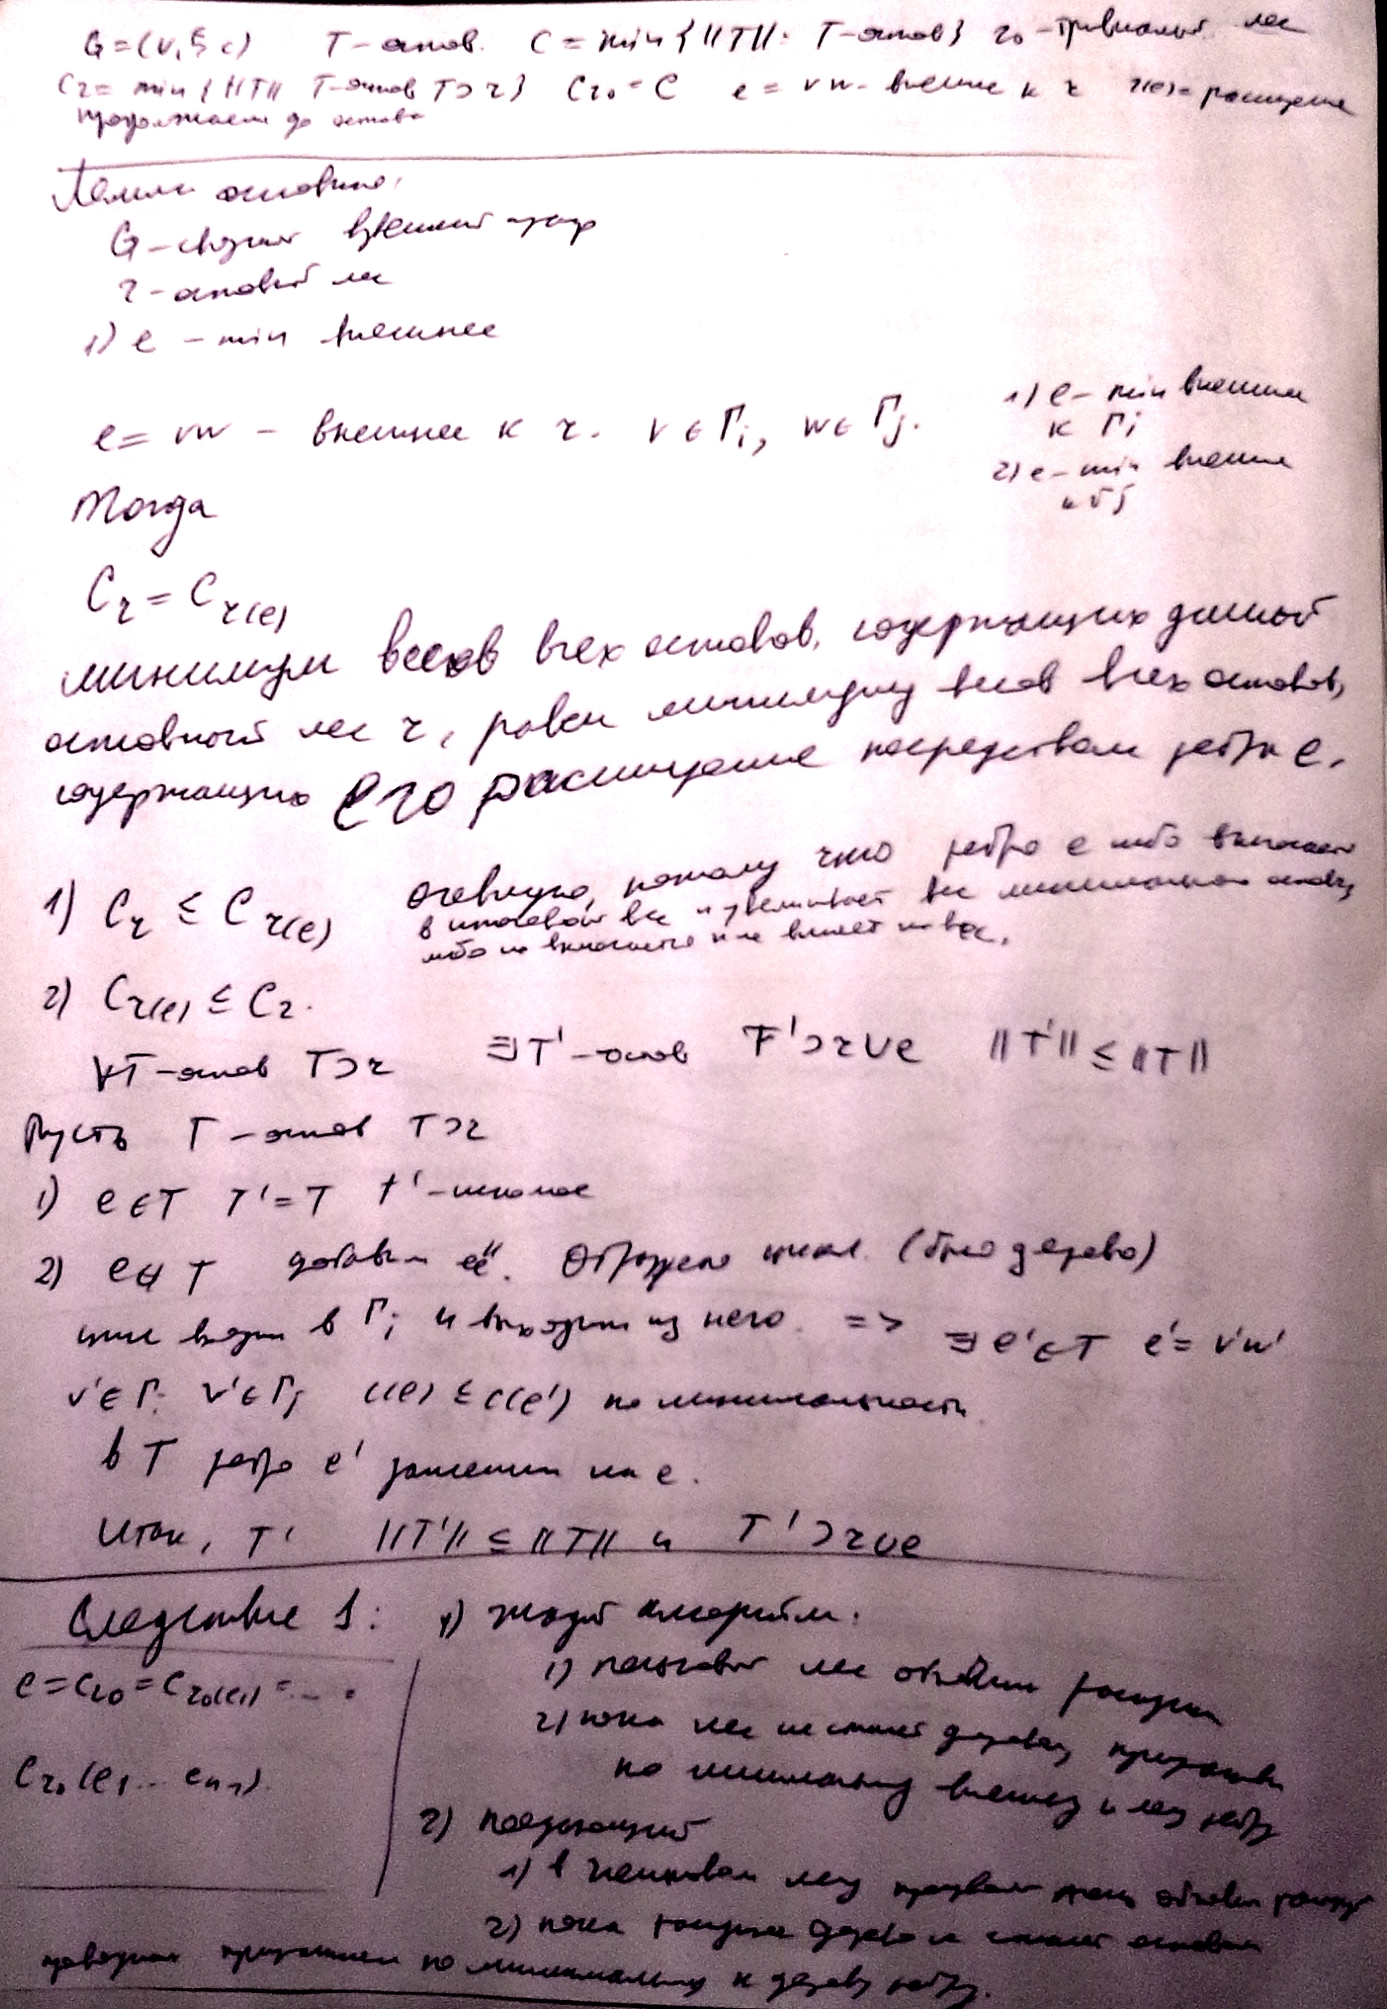 G=(V,E,c) T-остов. C=min{||T||: T-остов} r₀-тривиальный лес
Cr=min{||T|| T-остов T⊃r} Cr₀=C e=vw-внешнее к r r(e)=расширение
продолжаем до остова
Лемма основная.
G-связный взвешенный граф
r-остовный лес
1) e - min внешнее
e=vw - внешнее к r. v∈Гi, w∈Гj.
1) e-min внешнее
к Гi
2) e-min внешнее
к Гj
Тогда
Cr=Cr(e)
минимум весов всех остовов, содержащих данный
остовный лес r, равен минимуму весов всех остовов,
содержащих его расширение посредством ребра e.
1) Cr ≤ Cr(e) очевидно, потому что ребро e либо включается
в итоговый вес и увеличивает вес минимального остова,
либо не включается и не влияет на вес.
2) Cr(e) ≤ Cr.
∀T-остов T⊃r ∃T'-остов T'⊃r∪e ||T'|| ≤ ||T||
Пусть T-остов T⊃r
1) e∈T T'=T T'-искомое
2) e∉T добавим её. Образуем цикл. (было дерево)
цикл входит в Гi и выходит из него. => ∃e'∈T e'=v'w'
v'∈Гi v'∈Гj c(e) ≤ c(e') по минимальности
в T ребро e' заменим на e.
Итак, T' ||T'|| ≤ ||T|| и T'⊃r∪e
Следствие 1:
C=Cr₀=Cr₀(e₁)=...=
Cr₀(e₁...eₙ₋₁).
1) жадный алгоритм:
1) остовный лес объявим
2) пока лес не станет деревом, приращиваем
по минимальному внешнему к лесу ребру
2) 
1) в лесу объявим
2) пока дерево не станет остовом
приращиваем по минимальному к дереву ребру.